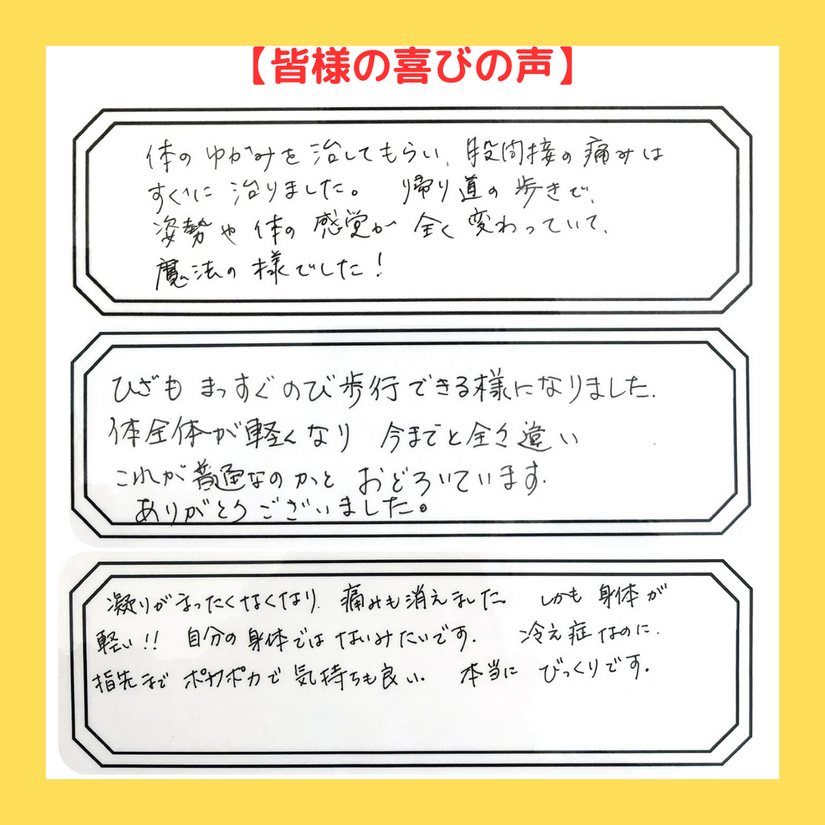 【皆様の喜びの声】
体のゆがみを治してもらい、股間接の痛みは
すぐに治りました。帰り道の歩きで、
姿勢や体の感覚が全く変わっていて、
魔法の様でした!
ひざもまっすぐのび歩行できる様になりました.
体全体が軽くなり 今までと全々違い
これが普通なのかと おどろいています.
ありがとうございました。
凝りがまったくなくなり、痛みも消えました。 しかも身体が
軽い!! 自分の身体ではないみたいです. 冷え症なのに.
指先までポカポカで気持ちも良い. 本当に びっくりです.